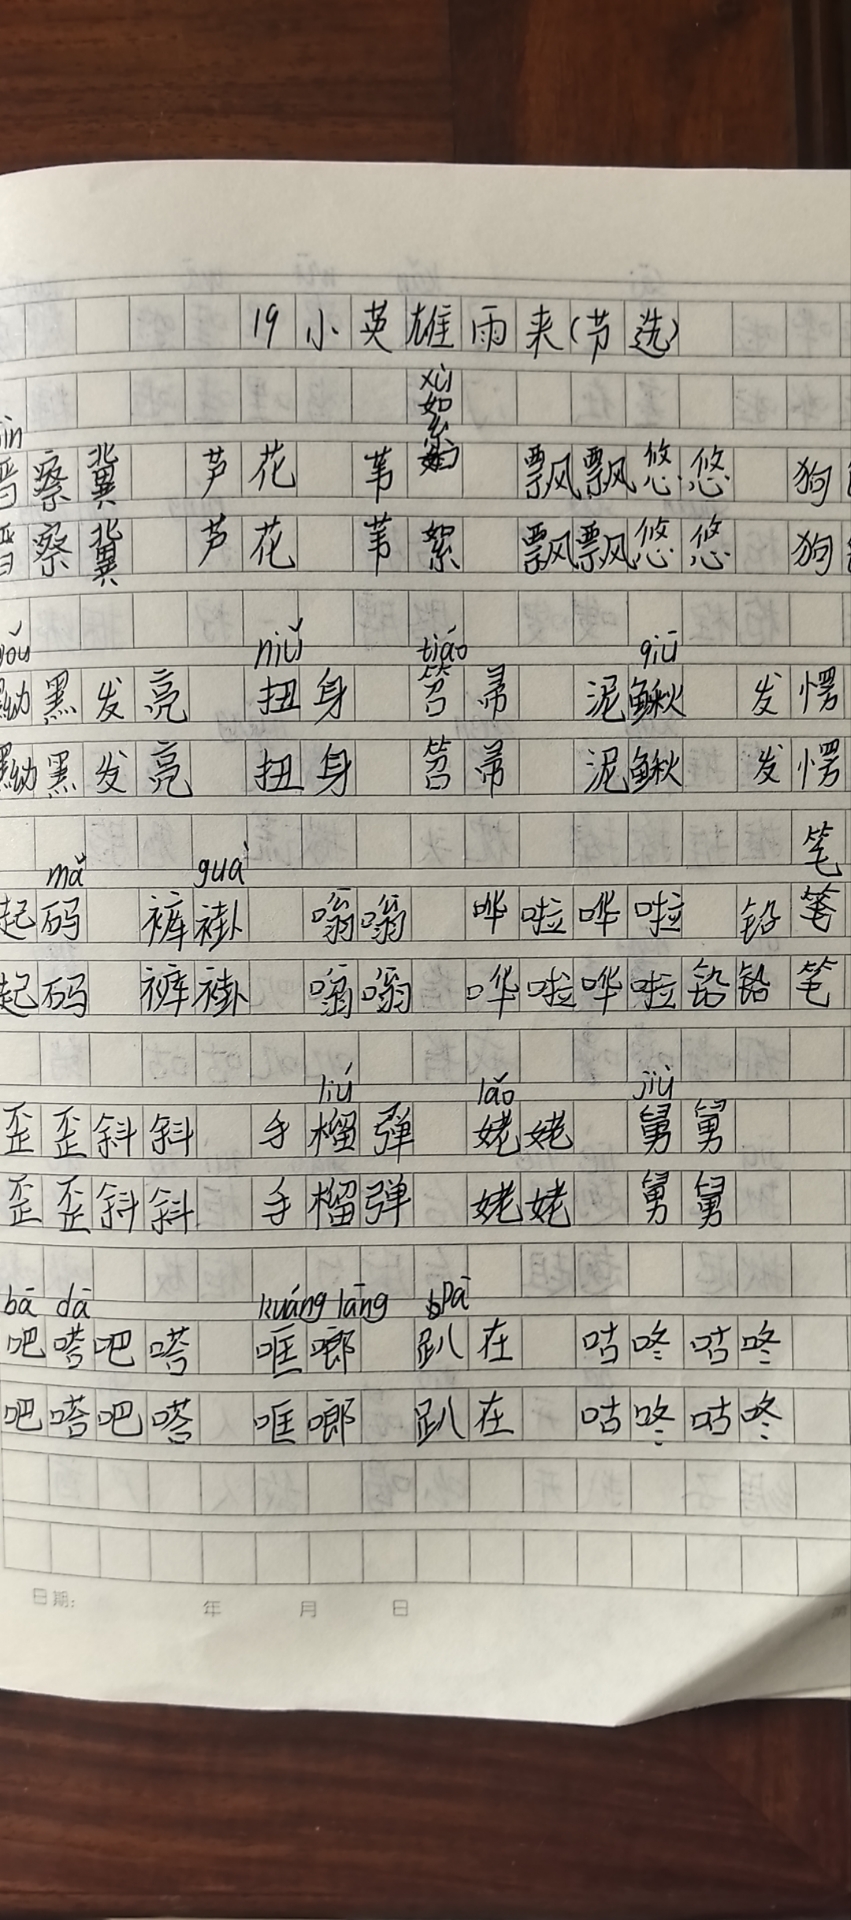 19小英雄雨来(节选)
xù
絮
晋察冀 芦花 苇 飘飘悠悠 狗
晋察冀 芦花 苇絮 飘飘悠悠 狗
niǔ tiáo qiū
黝黑发亮 扭身 笤帚 泥鳅 发愣
黝黑发亮 扭身 笤帚 泥鳅 发愣
笔
mǎ guà
起码 裤褂 嗡嗡 哗啦哗啦 铅
起码 裤褂 嗡嗡 哗啦哗啦铅铅笔
liú lǎo jiù
歪歪斜斜 手榴弹 姥姥 舅舅
歪歪斜斜 手榴弹 姥姥 舅舅
bā dā kuáng lāng pā
吧嗒吧嗒 哐啷 趴在 咕咚咕咚
吧嗒吧嗒 哐啷 趴在 咕咚咕咚
日期: 年 月 日